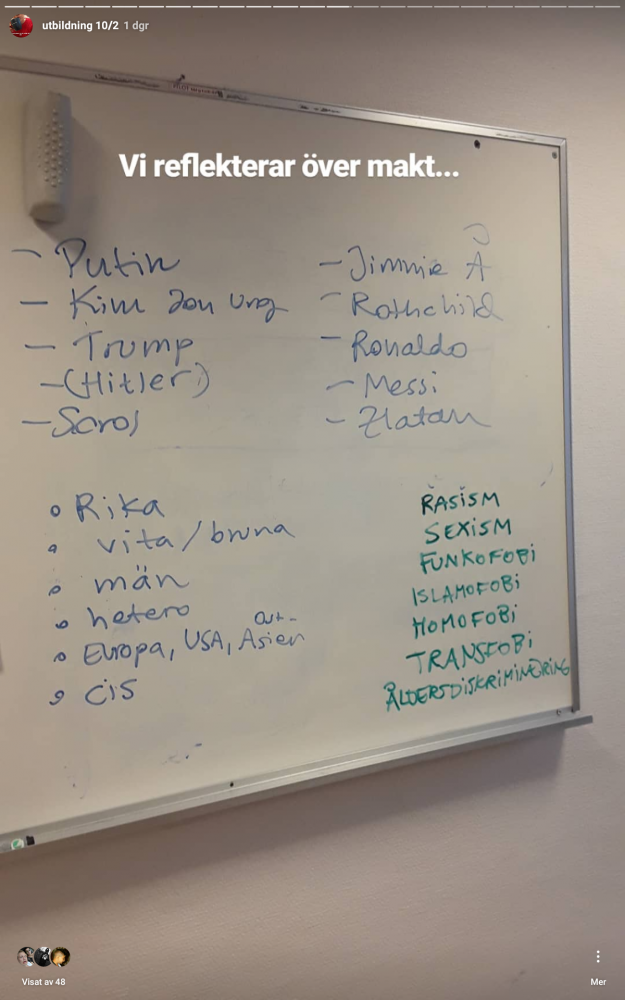 utbildning 10/2 1 dgr
Vi reflekterar över makt...
- Putin
- Kim Jon Ung
- Trump
- (Hitler)
- Soros
- Jimmie Å
- Rothchild
- Ronaldo
- Messi
- Zlatan
Rika
vita/bruna
män
hetero
Öst-
Europa, USA, Asien
cis
RASISM
SEXISM
FUNKOFOBi
ISLAMOFOBi
HOMOFOBi
TRANSFOBi
ÅLDERSDISKRIMINERING
Visat av 48
Mer